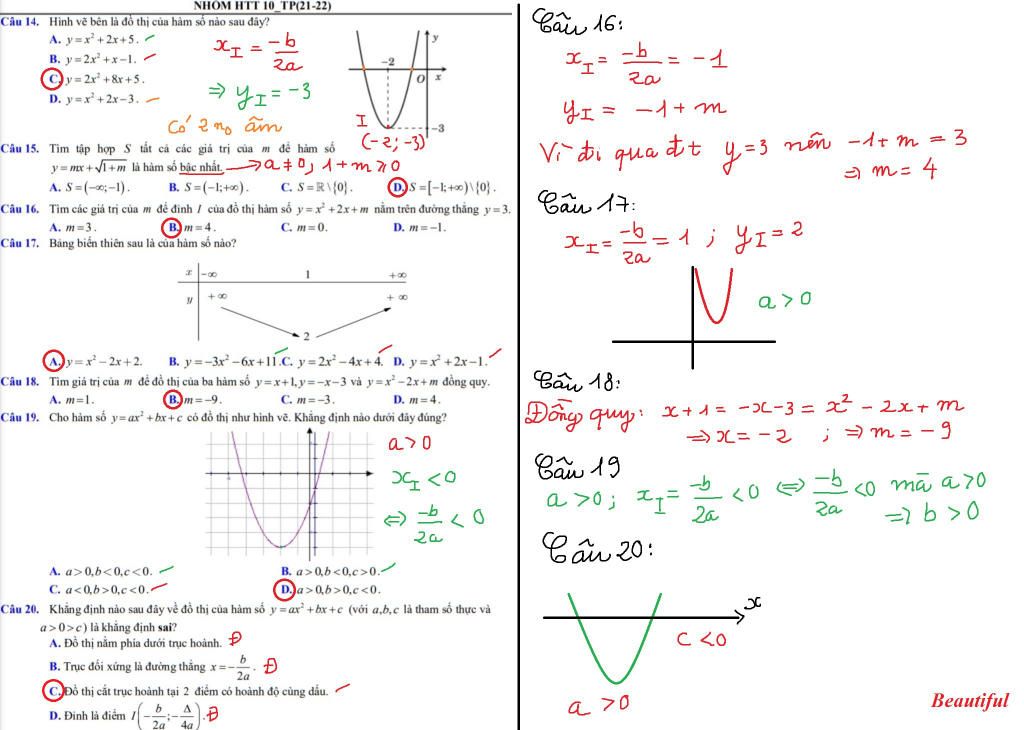 NHÓM HTT 10_TP(21-22)
Câu 14. Hình vẽ bên là đồ thị của hàm số nào sau đây?
A. y = x² + 2x + 5.
B. y = 2x² + x − 1.
C. y = 2x² + 8x + 5.
D. y = x² + 2x − 3.
x_I = -b/2a
⇒ y_I = -3
Có 2 n₀ âm
y
−2
O x
I
−3
(-2; -3)
Câu 15. Tìm tập hợp S tất cả các giá trị của m để hàm số
y = mx + √(1+m) là hàm số bậc nhất. → a ≠ 0, 1 + m ≥ 0
A. S = (−∞; −1). B. S = (−1; +∞). C. S = ℝ \ {0}. D. S = [−1; +∞) \ {0}.
Câu 16. Tìm các giá trị của m để đỉnh I của đồ thị hàm số y = x² + 2x + m nằm trên đường thẳng y = 3.
A. m = 3. B. m = 4. C. m = 0. D. m = −1.
Câu 17. Bảng biến thiên sau là của hàm số nào?
x −∞ 1 +∞
y +∞ +∞
2
A. y = x² − 2x + 2. B. y = −3x² − 6x + 11. C. y = 2x² − 4x + 4. D. y = x² + 2x − 1.
Câu 18. Tìm giá trị của m để đồ thị của ba hàm số y = x + 1, y = −x − 3 và y = x² − 2x + m đồng quy.
A. m = 1. B. m = −9. C. m = −3. D. m = 4.
Câu 19. Cho hàm số y = ax² + bx + c có đồ thị như hình vẽ. Khẳng định nào dưới đây đúng?
a > 0
x_I < 0
⇔ -b/2a < 0
A. a > 0, b < 0, c < 0. B. a > 0, b < 0, c > 0.
C. a < 0, b > 0, c < 0. D. a > 0, b > 0, c < 0.
Câu 20. Khẳng định nào sau đây về đồ thị của hàm số y = ax² + bx + c (với a, b, c là tham số thực và
a > 0 > c) là khẳng định sai?
A. Đồ thị nằm phía dưới trục hoành. Đ
B. Trục đối xứng là đường thẳng x = −b/2a. Đ
C. Đồ thị cắt trục hoành tại 2 điểm có hoành độ cùng dấu.
D. Đỉnh là điểm I(−b/2a; −Δ/4a). Đ
Câu 16:
x_I = -b/2a = -1
y_I = -1 + m
Vì đi qua đt y = 3 nên -1 + m = 3
⇒ m = 4
Câu 17:
x_I = -b/2a = 1 ; y_I = 2
a > 0
Câu 18:
Đồng quy: x + 1 = -x - 3 = x² - 2x + m
⇒ x = -2 ; ⇒ m = -9
Câu 19
a > 0; x_I = -b/2a < 0 ⇔ -b/2a < 0 mà a > 0
⇒ b > 0
Câu 20:
x
c < 0
a > 0
Beautiful